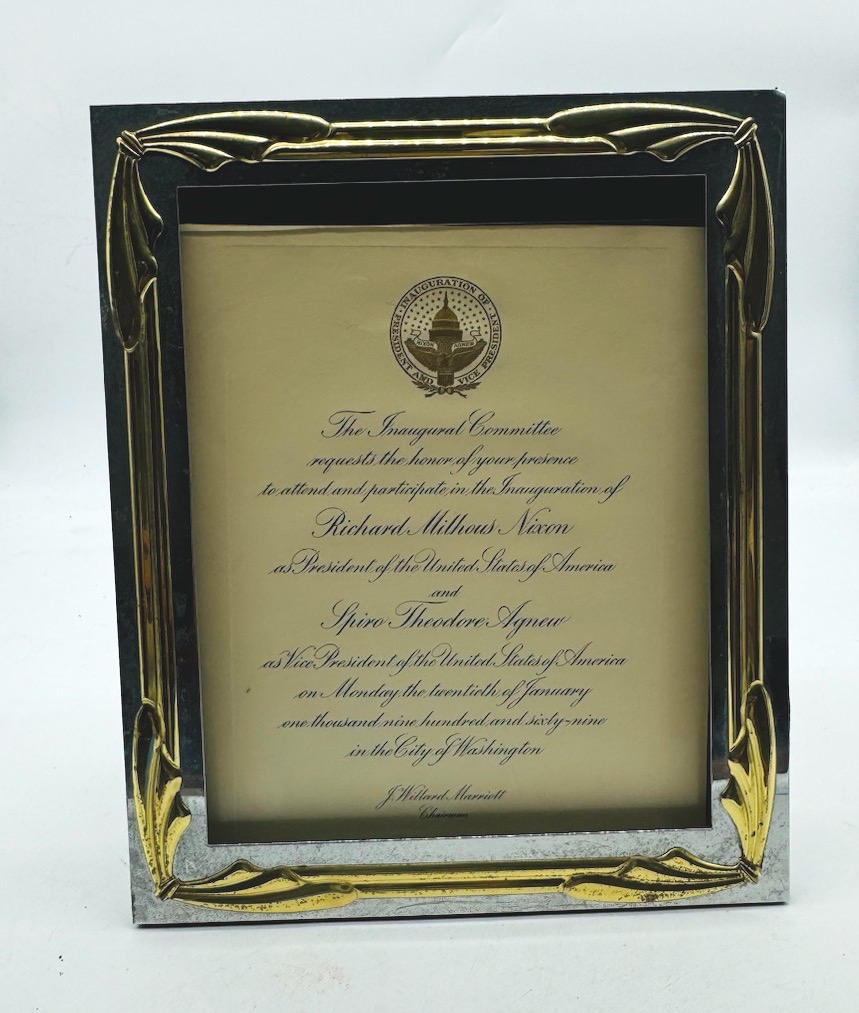 · INAUGURATION OF ·
PRESIDENT AND VICE PRESIDENT
NIXON AGNEW
The Inaugural Committee
requests the honor of your presence
to attend and participate in the Inauguration of
Richard Milhous Nixon
as President of the United States of America
and
Spiro Theodore Agnew
as Vice President of the United States of America
on Monday the twentieth of January
one thousand nine hundred and sixty-nine
in the City of Washington
J. Willard Marriott
Chairman